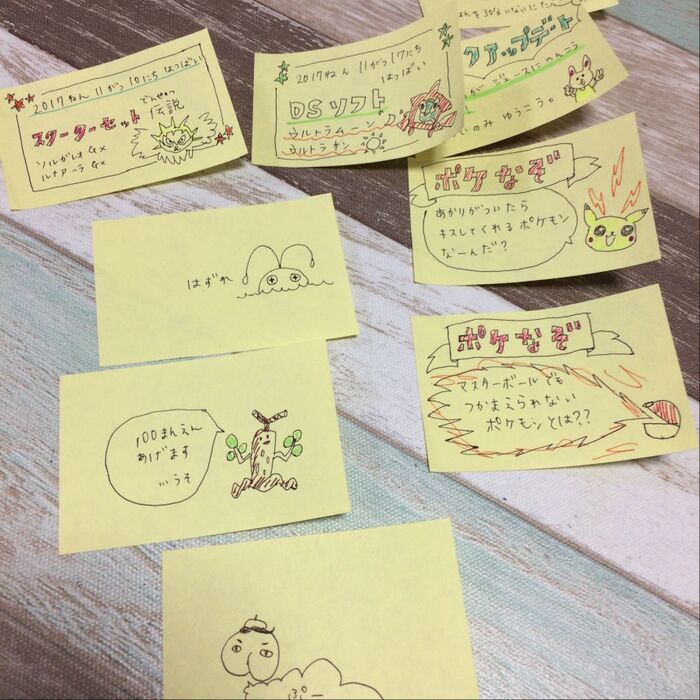 2017ねん 11がつ 10にち はつばい
でんせつ
スターターセット 伝説
ソルガレオGX
ルナアーラGX
2017ねん 11がつ17にち
はつばい
DSソフト
ウルトラムーン
ウルトラサン
クアップデート
ゆうこう。
ポケなぞ
あかりがついたら
キスしてくれるポケモン
なーんだ?
はずれ
ポケなぞ
マスターボールでも
つかまえられない
ポケモンとは??
100まんえん
あげます
…うそ
ぷー